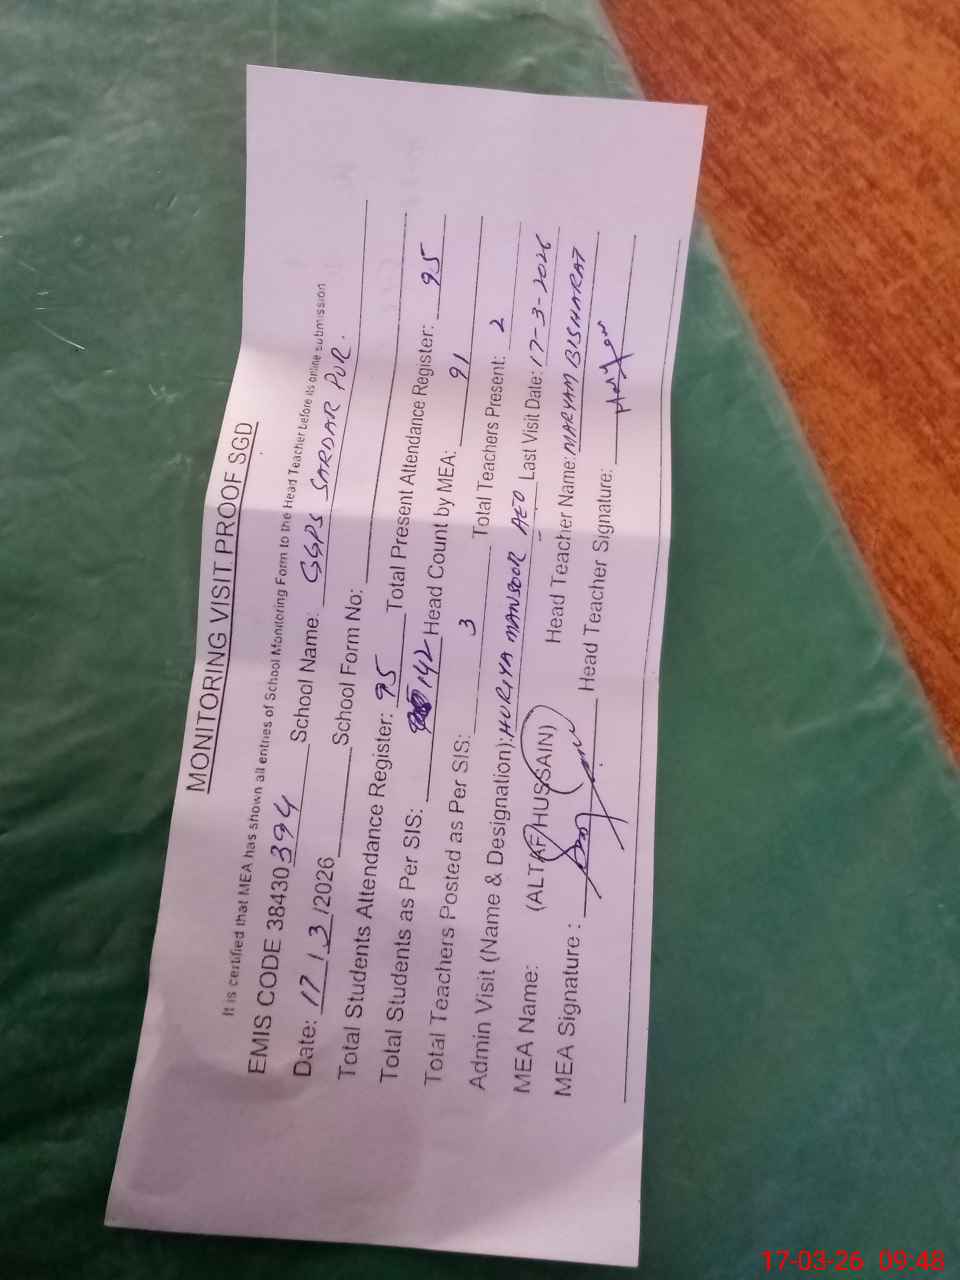 MONITORING VISIT PROOF SGD
It is certified that MEA has shown all entries of School Monitoring Form to the Head Teacher before its online submission
EMIS CODE 38430394 School Name: GGPS SARDAR PUR.
Date: 17/3/2026 School Form No:
Total Students Attendance Register: 95 Total Present Attendance Register: 95
Total Students as Per SIS: 142 Head Count by MEA: 91
Total Teachers Posted as Per SIS: 3 Total Teachers Present: 2
Admin Visit (Name & Designation): HURIYA MANSOOR AEO Last Visit Date: 17-3-2026
MEA Name: (ALTAF HUSSAIN) Head Teacher Name: MARYAM BISHARAT
MEA Signature : Head Teacher Signature:
17-03-26 09:48